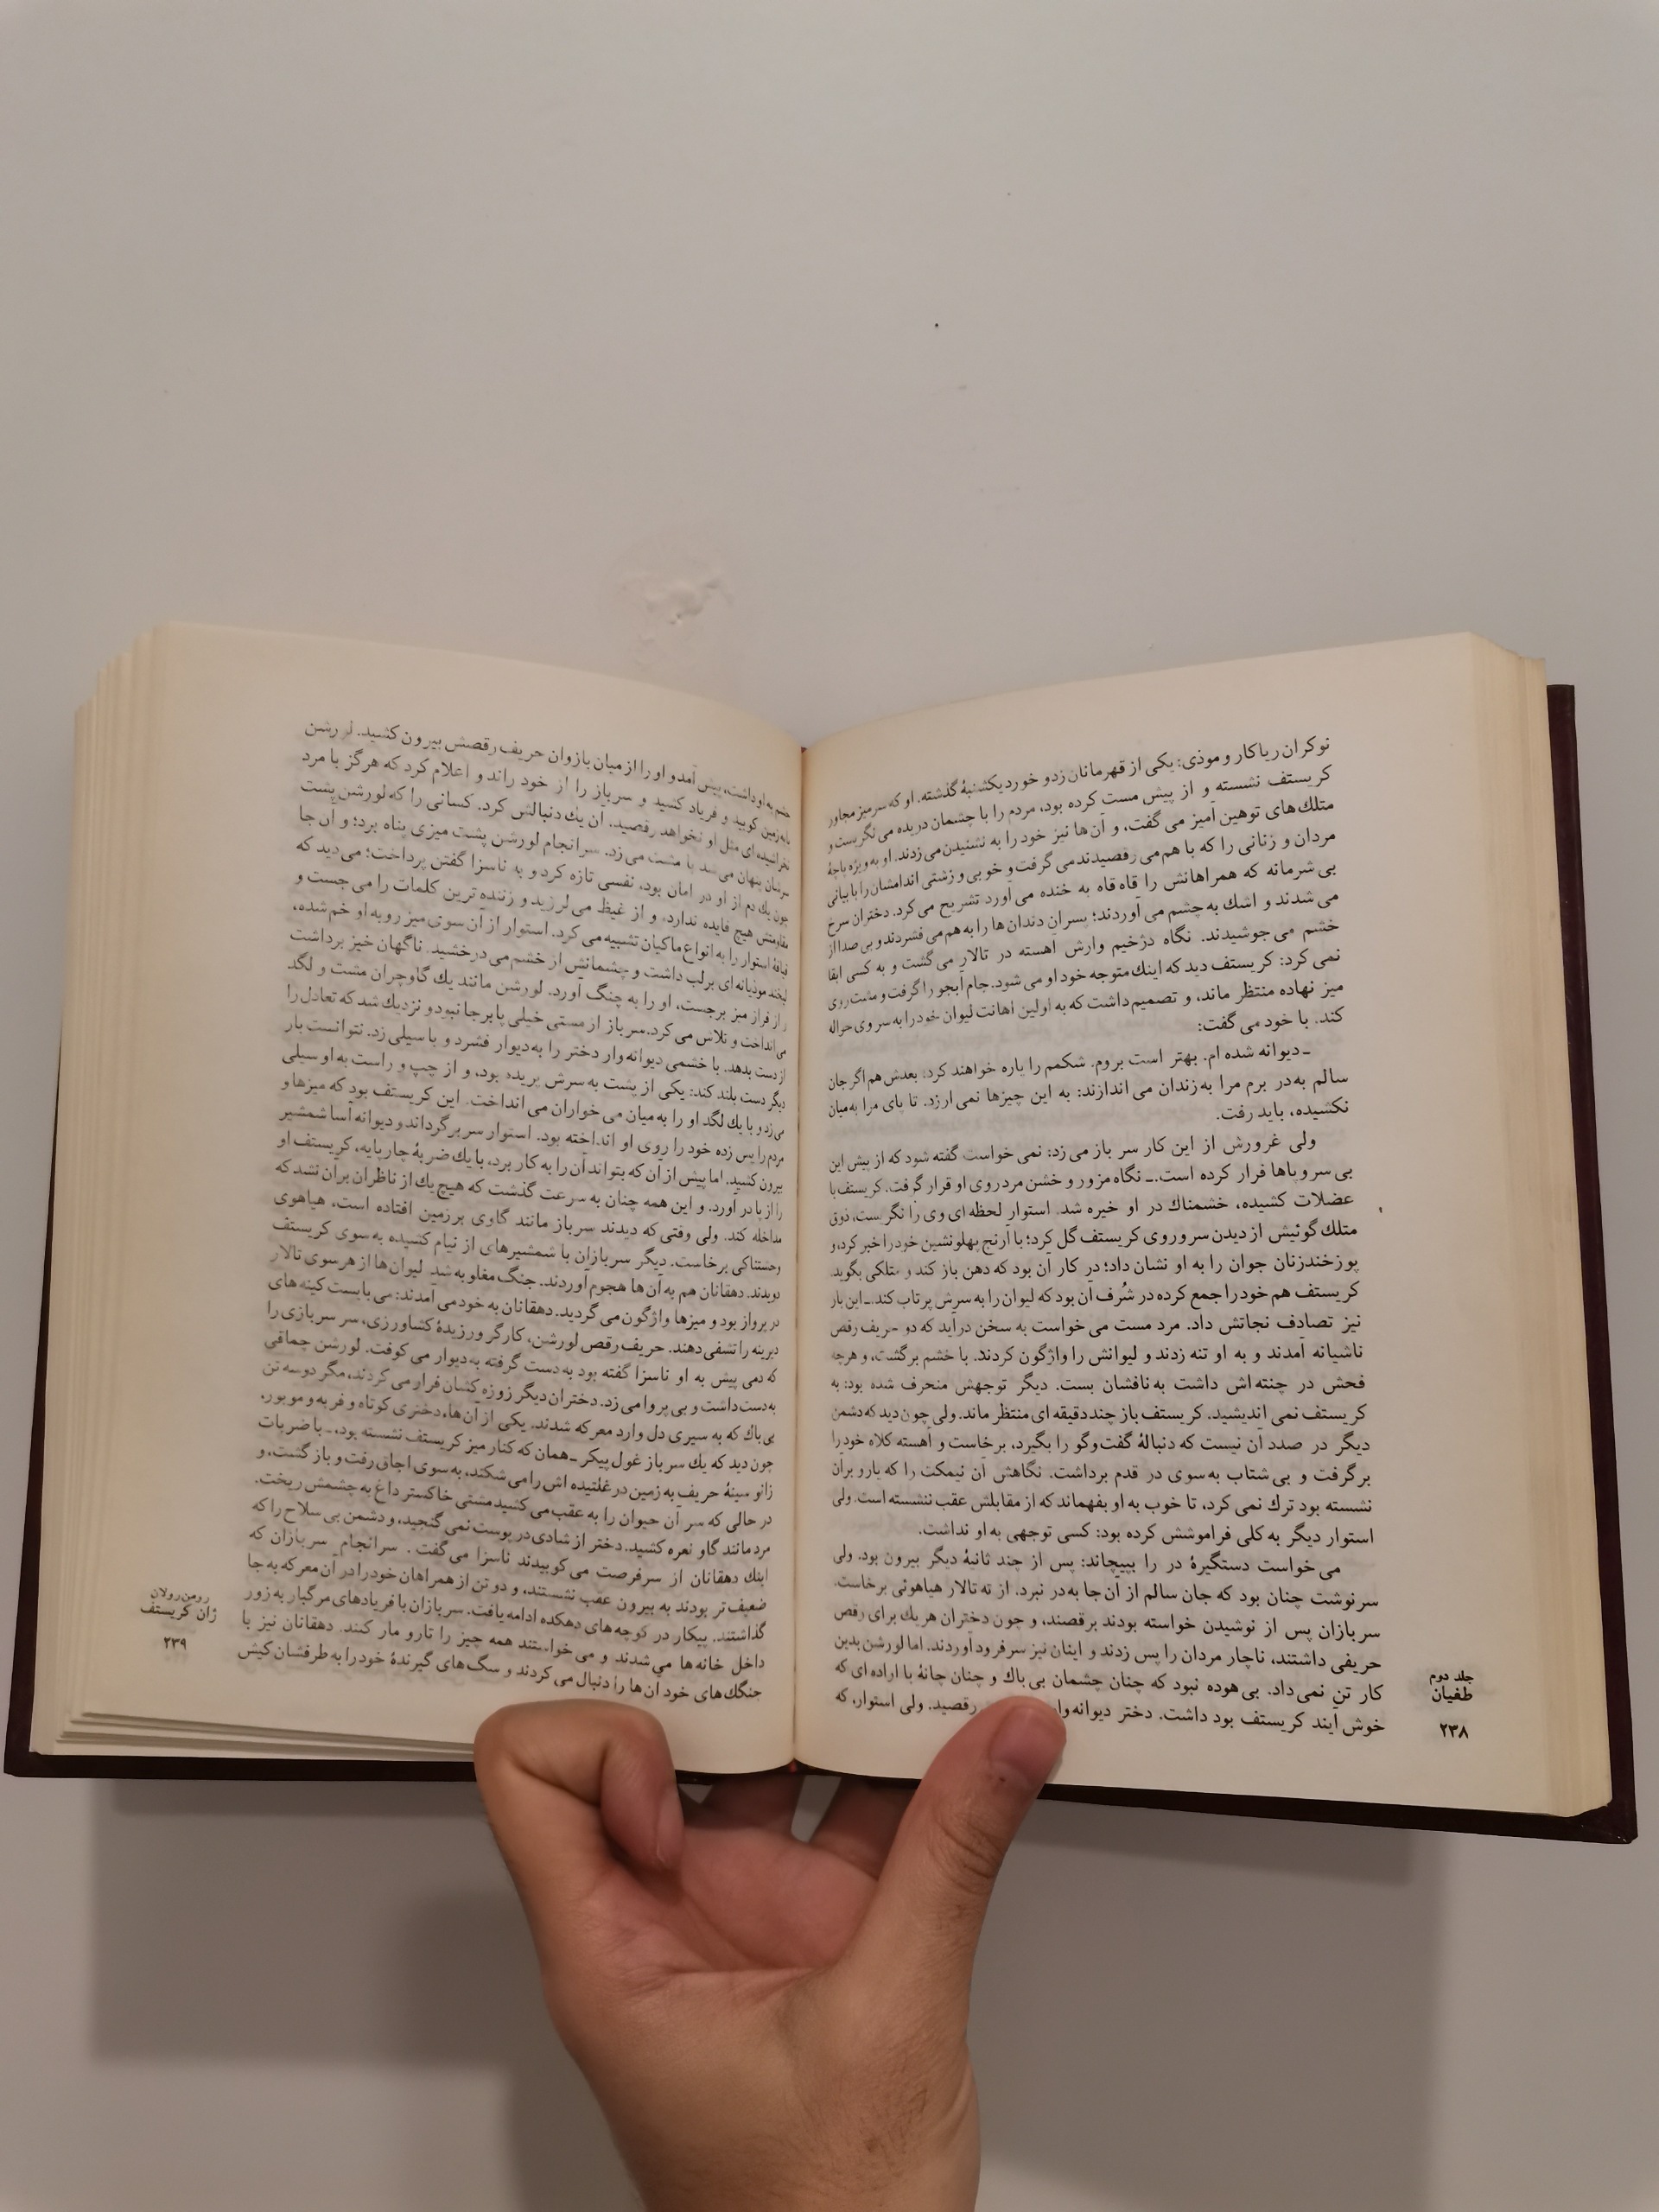 نوکران ریاکار و موذی: یکی از قهرمانان زدو خورد یکشنبهٔ گذشته. او که سرمیز مجاور
کریستف نشسته و از پیش مست کرده بود، مردم را با چشمان دریده می نگریست و
متلك های توهین آمیز می گفت، و آن ها نیز خود را به نشنیدن می زدند. او به ویژه باجهٔ
مردان و زنانی را که با هم می رقصیدند می گرفت و خوبی و زشتی اندامشان را با بیانی
بی شرمانه که همراهانش را قاه قاه به خنده می آورد تشریح می کرد. دختران سرخ
می شدند و اشك به چشم می آوردند؛ پسران دندان ها را به هم می فشردند و بی صدا از
خشم می جوشیدند. نگاه دژخیم وارش آهسته در تالار می گشت و به کسی ابقا
نمی کرد: کریستف دید که اینك متوجه خود او می شود. جام آبجو را گرفت و مشت روی
میز نهاده منتظر ماند، و تصمیم داشت که به اولین اهانت لیوان خود را به سر وی حواله
کند. با خود می گفت:
ـ دیوانه شده ام. بهتر است بروم. شکمم را پاره خواهند کرد؛ بعدش هم اگر جان
سالم به در برم مرا به زندان می اندازند: به این چیزها نمی ارزد. تا پای مرا به میان
نکشیده، باید رفت.
ولی غرورش از این کار سر باز می زد: نمی خواست گفته شود که از پیش این
بی سروپاها فرار کرده است. ـ نگاه مزور و خشن مرد روی او قرار گرفت. کریستف با
عضلات کشیده، خشمناك در او خیره شد. استوار لحظه ای وی را نگریست، ذوق
متلك گوئیش از دیدن سروروی کریستف گل کرد؛ با آرنج پهلونشین خود را خبر کرد، و
پوزخندزنان جوان را به او نشان داد؛ در کار آن بود که دهن باز کند و متلکی بگوید.
کریستف هم خود را جمع کرده در شُرف آن بود که لیوان را به سرش پرتاب کند. ـ این بار
نیز تصادف نجاتش داد. مرد مست می خواست به سخن درآید که دو حریف رقص
ناشیانه آمدند و به او تنه زدند و لیوانش را واژگون کردند. با خشم برگشت، و هرچه
فحش در چنته اش داشت به نافشان بست. دیگر توجهش منحرف شده بود: به
کریستف نمی اندیشید. کریستف باز چند دقیقه ای منتظر ماند. ولی چون دید که دشمن
دیگر در صدد آن نیست که دنبالهٔ گفت وگو را بگیرد، برخاست و آهسته کلاه خود را
برگرفت و بی شتاب به سوی در قدم برداشت. نگاهش آن نیمکت را که یارو بر آن
نشسته بود ترك نمی کرد، تا خوب به او بفهماند که از مقابلش عقب ننشسته است. ولی
استوار دیگر به کلی فراموشش کرده بود: کسی توجهی به او نداشت.
می خواست دستگیرهٔ در را بپیچاند: پس از چند ثانیهٔ دیگر بیرون بود. ولی
سرنوشت چنان بود که جان سالم از آن جا به در نبرد. از ته تالار هیاهوئی برخاست.
سربازان پس از نوشیدن خواسته بودند برقصند، و چون دختران هر یك برای رقص
حریفی داشتند، ناچار مردان را پس زدند و اینان نیز سر فرود آوردند. اما لورشن بدین
کار تن نمی داد. بی هوده نبود که چنان چشمان بی باك و چنان چانهٔ با اراده ای که
خوش آیند کریستف بود داشت. دختر دیوانه وار رقصید. ولی استوار، که
جلد دوم
طغیان
۲۳۸
چشم به او داشت، پیش آمد و او را از میان بازوان حریف رقصش بیرون کشید. لورشن
پا به زمین کوبید و فریاد کشید و سرباز را از خود راند و اعلام کرد که هرگز با مرد
نخراشیده ای مثل او نخواهد رقصید. آن یك دنبالش کرد. کسانی را که لورشن پشت
سرشان پنهان می شد با مشت می زد. سرانجام لورشن پشت میزی پناه برد؛ و آن جا
چون یك دم از او در امان بود، نفسی تازه کرد و به ناسزا گفتن پرداخت؛ می دید که
مقاومتش هیچ فایده ندارد، و از غیظ می لرزید و زننده ترین کلمات را می جست و
قیافهٔ استوار را به انواع ماکیان تشبیه می کرد. استوار از آن سوی میز رو به او خم شده،
لبخند موذیانه ای بر لب داشت و چشمانش از خشم می درخشید. ناگهان خیز برداشت
و از فراز میز برجست، او را به چنگ آورد. لورشن مانند یك گاوچران مشت و لگد
می انداخت و تلاش می کرد. سرباز از مستی خیلی پابرجا نبود و نزدیك شد که تعادل را
از دست بدهد. با خشمی دیوانه وار دختر را به دیوار فشرد و با سیلی زد. نتوانست بار
دیگر دست بلند کند: یکی از پشت به سرش پریده بود، و از چپ و راست به او سیلی
می زد و با یك لگد او را به میان می خواران می انداخت. این کریستف بود که میزها و
مردم را پس زده خود را روی او انداخته بود. استوار سر برگرداند و دیوانه آسا شمشیر
بیرون کشید. اما پیش از آن که بتواند آن را به کار برد، با یك ضربهٔ چارپایه، کریستف او
را از پا در آورد. و این همه چنان به سرعت گذشت که هیچ یك از ناظران بر آن نشد که
مداخله کند. ولی وقتی که دیدند سرباز مانند گاوی بر زمین افتاده است، هیاهوی
وحشتناکی برخاست. دیگر سربازان با شمشیرهای از نیام کشیده به سوی کریستف
دویدند. دهقانان هم به آن ها هجوم آوردند. جنگ مغلوبه شد. لیوان ها از هر سوی تالار
در پرواز بود و میزها واژگون می گردید. دهقانان به خود می آمدند: می بایست کینه های
دیرینه را تشفی دهند. حریف رقص لورشن، کارگر ورزیدهٔ کشاورزی، سر سربازی را
که دمی پیش به او ناسزا گفته بود به دست گرفته به دیوار می کوفت. لورشن چماقی
به دست داشت و بی پروا می زد. دختران دیگر زوزه کشان فرار می کردند، مگر دو سه تن
بی باك که به سیری دل وارد معرکه شدند. یکی از آن ها، دختری کوتاه و فربه و موبور،
چون دید که یك سرباز غول پیکر ـ همان که کنار میز کریستف نشسته بود، ـ با ضربات
زانو سینهٔ حریف به زمین در غلتیده اش را می شکند، به سوی اجاق رفت و باز گشت، و
در حالی که سر آن حیوان را به عقب می کشید مشتی خاکستر داغ به چشمش ریخت.
مرد مانند گاو نعره کشید. دختر از شادی در پوست نمی گنجید، و دشمن بی سلاح را که
اینك دهقانان از سر فرصت می کوبیدند ناسزا می گفت. سرانجام سربازان که
ضعیف تر بودند به بیرون عقب نشستند، و دو تن از همراهان خود را در آن معرکه به جا
گذاشتند. پیکار در کوچه های دهکده ادامه یافت. سربازان با فریادهای مرگبار به زور
داخل خانه ها می شدند و می خواستند همه چیز را تارومار کنند. دهقانان نیز با
جنگك های خود آن ها را دنبال می کردند و سگ های گیرندهٔ خود را به طرفشان کیش
رومن رولان
ژان کریستف
۲۳۹